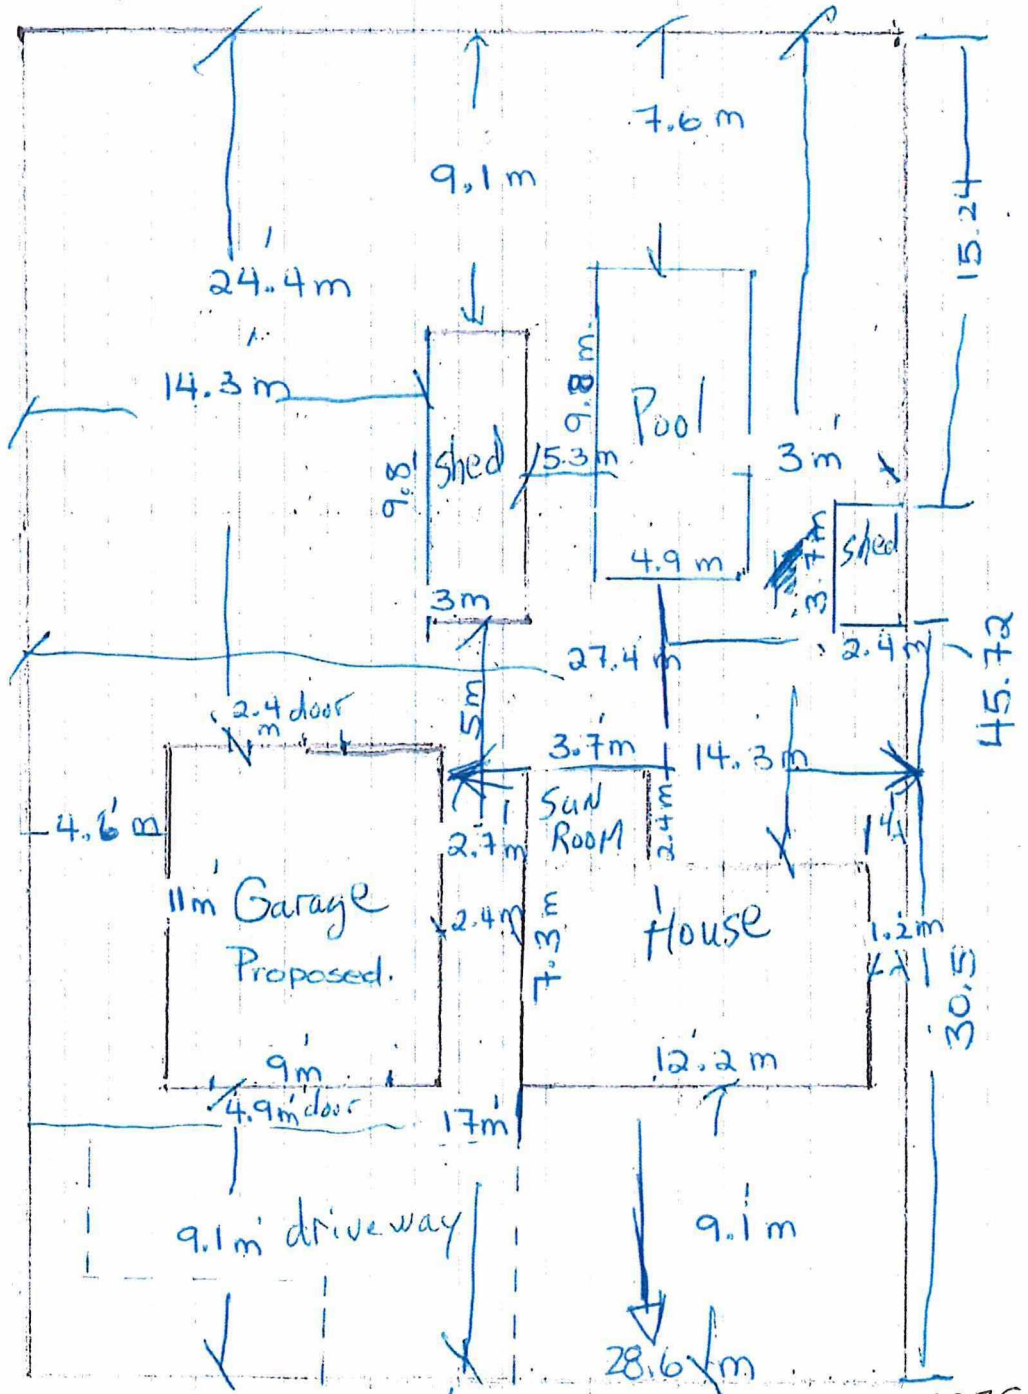 7.6 m
9.1 m
15.24
24.4 m
14.3 m
9.8 m.
Pool
9.8'
shed
5.3 m
3 m
4.9 m
3.7 m
shed
3m
27.4 m
2.4 m
45.72
2.4 door
m
5m
3.7m
14.3m
4.6 m
2.7 m
SUN
ROOM
2.4m
11m Garage
Proposed.
2.4m
7.3 m
House
1.2m
30.5
9m
12.2 m
4.9m door
17m
9.1m driveway
9.1m
28.6 m